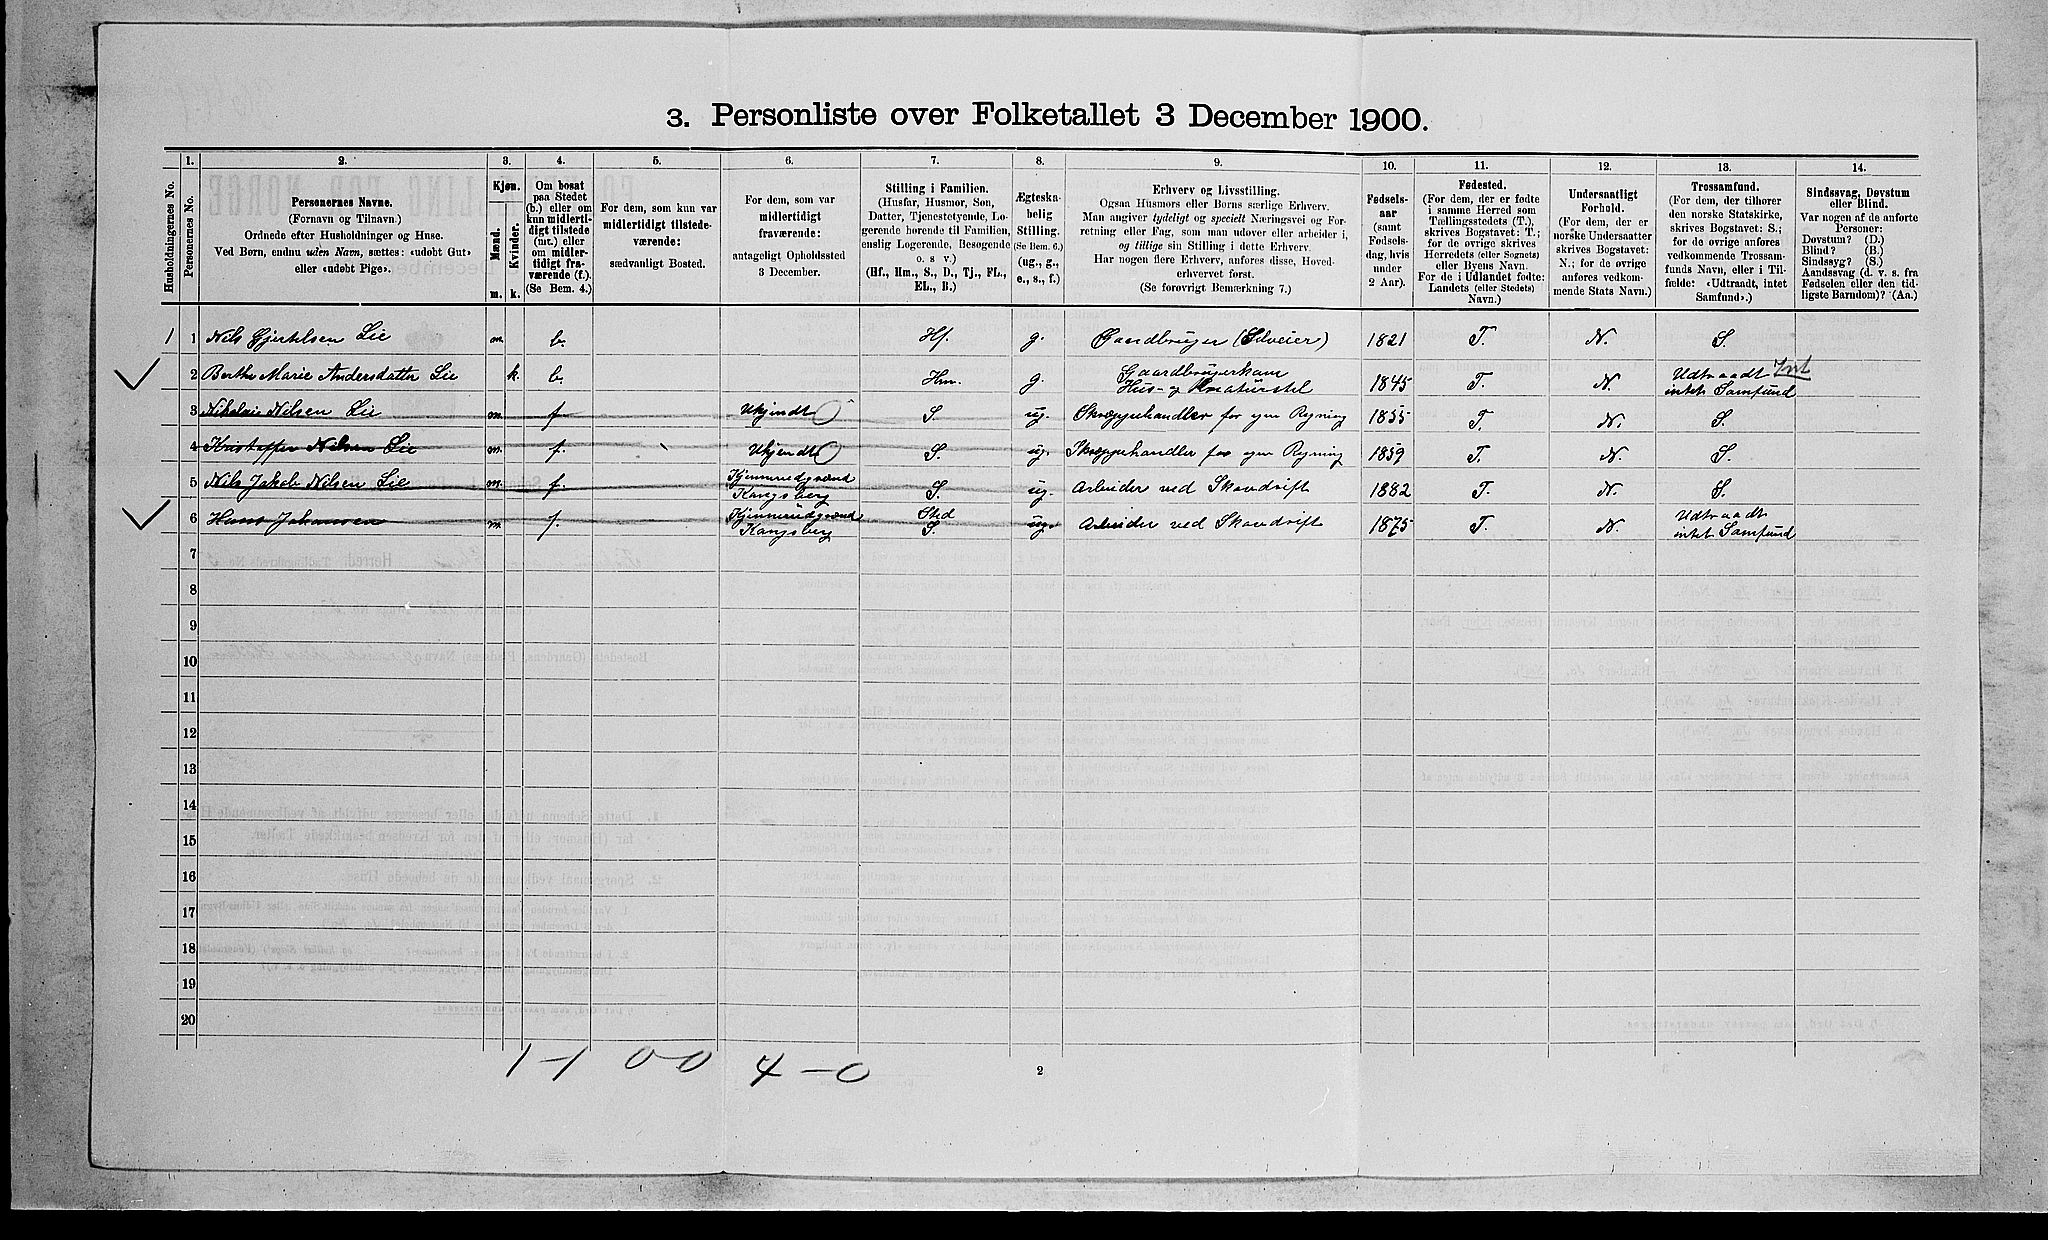 3. Personliste over Folketallet 3 December 1900.
Husholdningernes No.
1.
Personernes No.
2.
Personernes Navne.
(Fornavn og Tilnavn.)
Ordnede efter Husholdninger og Huse.
Ved Børn, endnu uden Navn, sættes: «udøbt Gut»
eller «udøbt Pige».
3.
Kjøn.
Mænd.
Kvinder.
m.
k.
4.
Om bosat
paa Stedet
(b.) eller om
kun midlerti-
digt tilstede
(mt.) eller
om midler-
tidigt fra-
værende (f.)
(Se Bem. 4.)
5.
For dem, som kun var
midlertidigt tilstede-
værende:
sædvanligt Bosted.
6.
For dem, som var
midlertidigt
fraværende:
antageligt Opholdssted
3 December.
7.
Stilling i Familien.
(Husfar, Husmor, Søn,
Datter, Tjenestetyende, Lo-
gerende hørende til Familien,
enslig Logerende, Besøgende
o. s. v.)
(Hf., Hm., S., D., Tj., FL.,
EL., B.)
8.
Ægteska-
belig
Stilling.
(Se Bem. 6.)
(ug., g.,
e., s., f.)
9.
Erhverv og Livsstilling.
Ogsaa Husmors eller Børns særlige Erhverv.
Man angiver tydeligt og specielt Næringsvei og For-
retning eller Fag, som man udøver eller arbeider i,
og tillige sin Stilling i dette Erhverv.
Har nogen flere Erhverv, anføres disse, Hoved-
erhvervet først.
(Se forøvrigt Bemærkning 7.)
10.
Fødsels-
aar
(samt
Fødsels-
dag, hvis
under
2 Aar).
11.
Fødested.
(For dem, der er fødte
i samme Herred som
Tællingsstedets (T.),
skrives Bogstavet: T.;
for de øvrige skrives
Herredets (eller Sognets)
eller Byens Navn.
For de i Udlandet fødte:
Landets (eller Stedets)
Navn.)
12.
Undersaatligt
Forhold.
(For dem, der er
norske Undersaatter
skrives Bogstavet:
N.; for de øvrige
anføres vedkom-
mende Stats Navn.)
13.
Trossamfund.
(For dem, der tilhører
den norske Statskirke,
skrives Bogstavet: S.;
for de øvrige anføres
vedkommende Trossam-
funds Navn, eller i Til-
fælde: «Udtraadt, intet
Samfund».)
14.
Sindssvag, Døvstum
eller Blind.
Var nogen af de anførte
Personer:
Døvstum? (D.)
Blind? (B.)
Sindssyg? (S.)
Aandssvag (d. v. s. fra
Fødselen eller den tid-
ligste Barndom)? (Aa.)
1 1 Nils Gjertelsen Lie m. b. Hf. g. Gaardbruger (Selveier) 1821 T. N. S.
2 Berthe Marie Andersdatter Lie k. b. Hm. g. Gaardbrugerkone
Hus- og Kreaturstel 1845 T. N Udtraadt Int
intet Samfund
3 Nikolai Nilsen Lie m f Ukjendt 0 S. ug. Skreppehandler for egen Regning 1855 T. N. S.
4 Kristoffer Nilsen Lie m. f. Ukjendt 0 S. ug. Skreppehandler for egen Regning 1859 T. N. S.
5 Nils Jakob Nilsen Lie m. f.
Kongsberg S. ug. Arbeider ved Skovdrift 1882 T. N. S.
6 Hans Johansen m f.
Kongsberg Sted
S. ug. Arbeider ved Skovdrift 1875 T. N. Udtraadt
intet Samfund
7
8
9
10
11
12
13
14
15
16
17
18
19
20
1-1 0-0 4-0
2